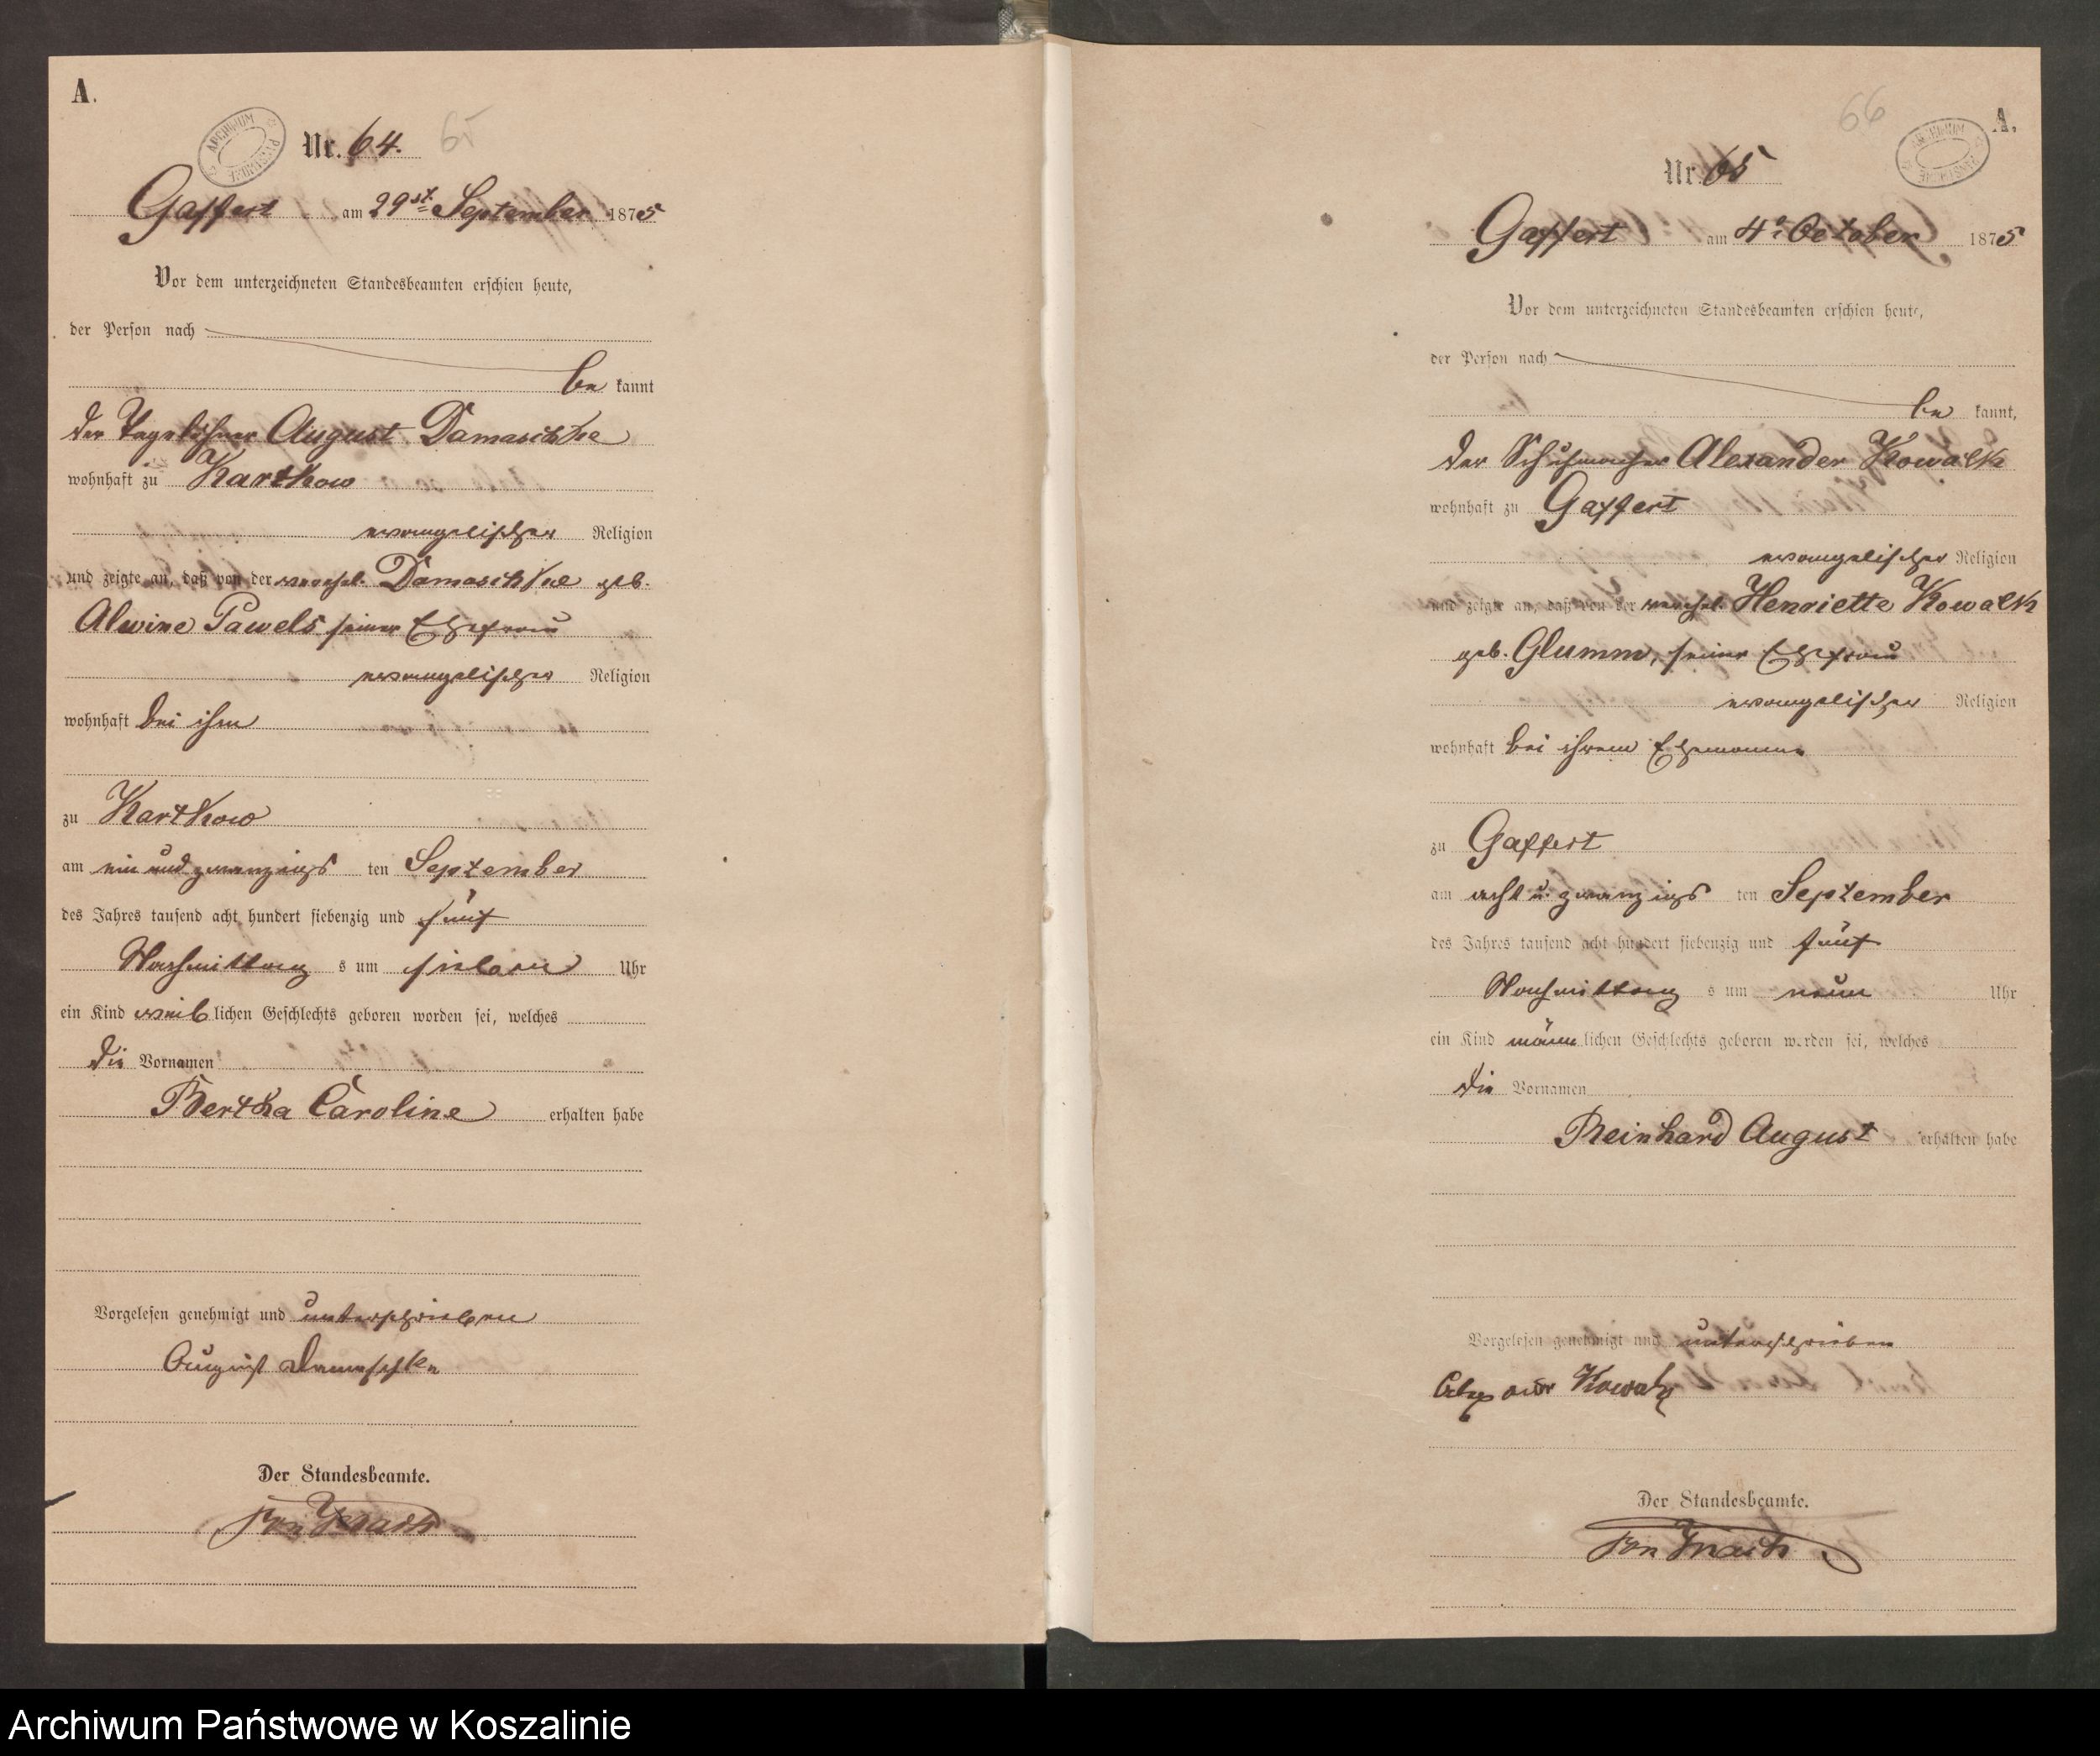 A.
ARCHIWUM PAŃSTWOWE
Nr. 64. 65
Gaffert am 29st. September 1875
Vor dem unterzeichneten Standesbeamten erschien heute,
der Person nach
be kannt
der Tagelöhner August Damaschke
wohnhaft zu Kartkow
evangelischer Religion
und zeigte an, daß von der verehel. Damaschke geb.
Alwine Pawels seiner Ehefrau
evangelischer Religion
wohnhaft bei ihm
zu Kartkow
am ein und zwanzigs ten September
des Jahres tausend acht hundert siebenzig und fünf
Nachmittag s um sieben Uhr
ein Kind weib lichen Geschlechts geboren worden sei, welches
die Vornamen
Bertha Caroline erhalten habe
Vorgelesen genehmigt und unterschrieben
August Damaschke
Der Standesbeamte.
von
66
A.
ARCHIWUM PAŃSTWOWE
Nr. 65
Gaffert am 4t October 1875
Vor dem unterzeichneten Standesbeamten erschien heute,
der Person nach
be kannt,
der Schuhmacher Alexander Kowalk
wohnhaft zu Gaffert
evangelischer Religion
und zeigte an, daß von der verehel. Henriette Kowalk
geb. Glumm, seiner Ehefrau
evangelischer Religion
wohnhaft bei ihrem Ehemanne
zu Gaffert
am acht u. zwanzigs ten September
des Jahres tausend acht hundert siebenzig und fünf
Nachmittag s um neun Uhr
ein Kind männ lichen Geschlechts geboren worden sei, welches
die Vornamen
Reinhard August erhalten habe
Vorgelesen genehmigt und unterschrieben
Kowalk
Der Standesbeamte.
von
Archiwum Państwowe w Koszalinie